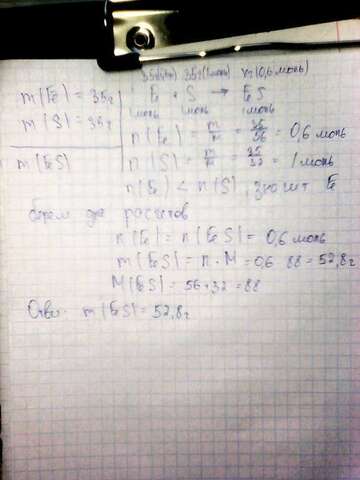 35г(0,6моль) 35г(1моль) m(0,6моль)
m(Fe)=35г Fe + S → FeS
1моль 1моль 1моль
m(S)=35г n(Fe)= m/M = 35/56 = 0,6 моль
m(FeS) n(S)= m/M = 35/32 = 1 моль
n(Fe) < n(S), значит Fe
берем для расчетов
n(Fe)=n(FeS)=0,6 моль
m(FeS)=n·M=0,6 88=52,8г
M(FeS)=56+32=88
Ответ: m(FeS)=52,8г